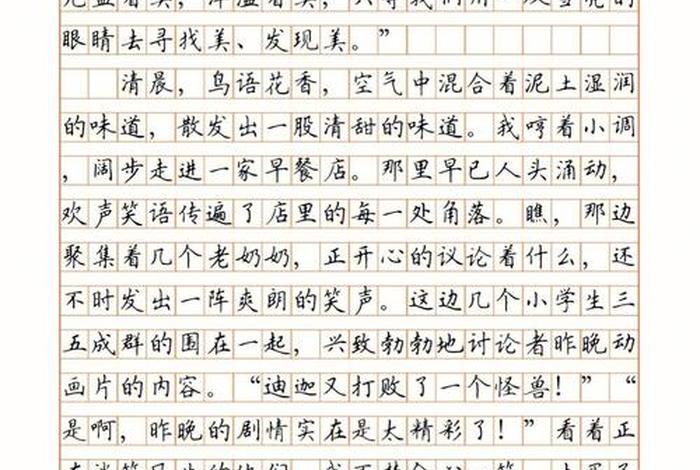 眼睛去寻找美、发现美。”
清晨，鸟语花香，空气中混合着泥土湿润
的味道，散发出一股清甜的味道。我哼着小调
，阔步走进一家早餐店。那里早已人头涌动，
欢声笑语传遍了店里的每一处角落。瞧，那边
聚集着几个老奶奶，正开心的议论着什么，还
不时发出一阵爽朗的笑声。这边几个小学生三
五成群的围在一起，兴致勃勃地讨论者昨晚动
画片的内容。“迪迦又打败了一个怪兽！”“
是啊，昨晚的剧情实在是太精彩了！”看着正